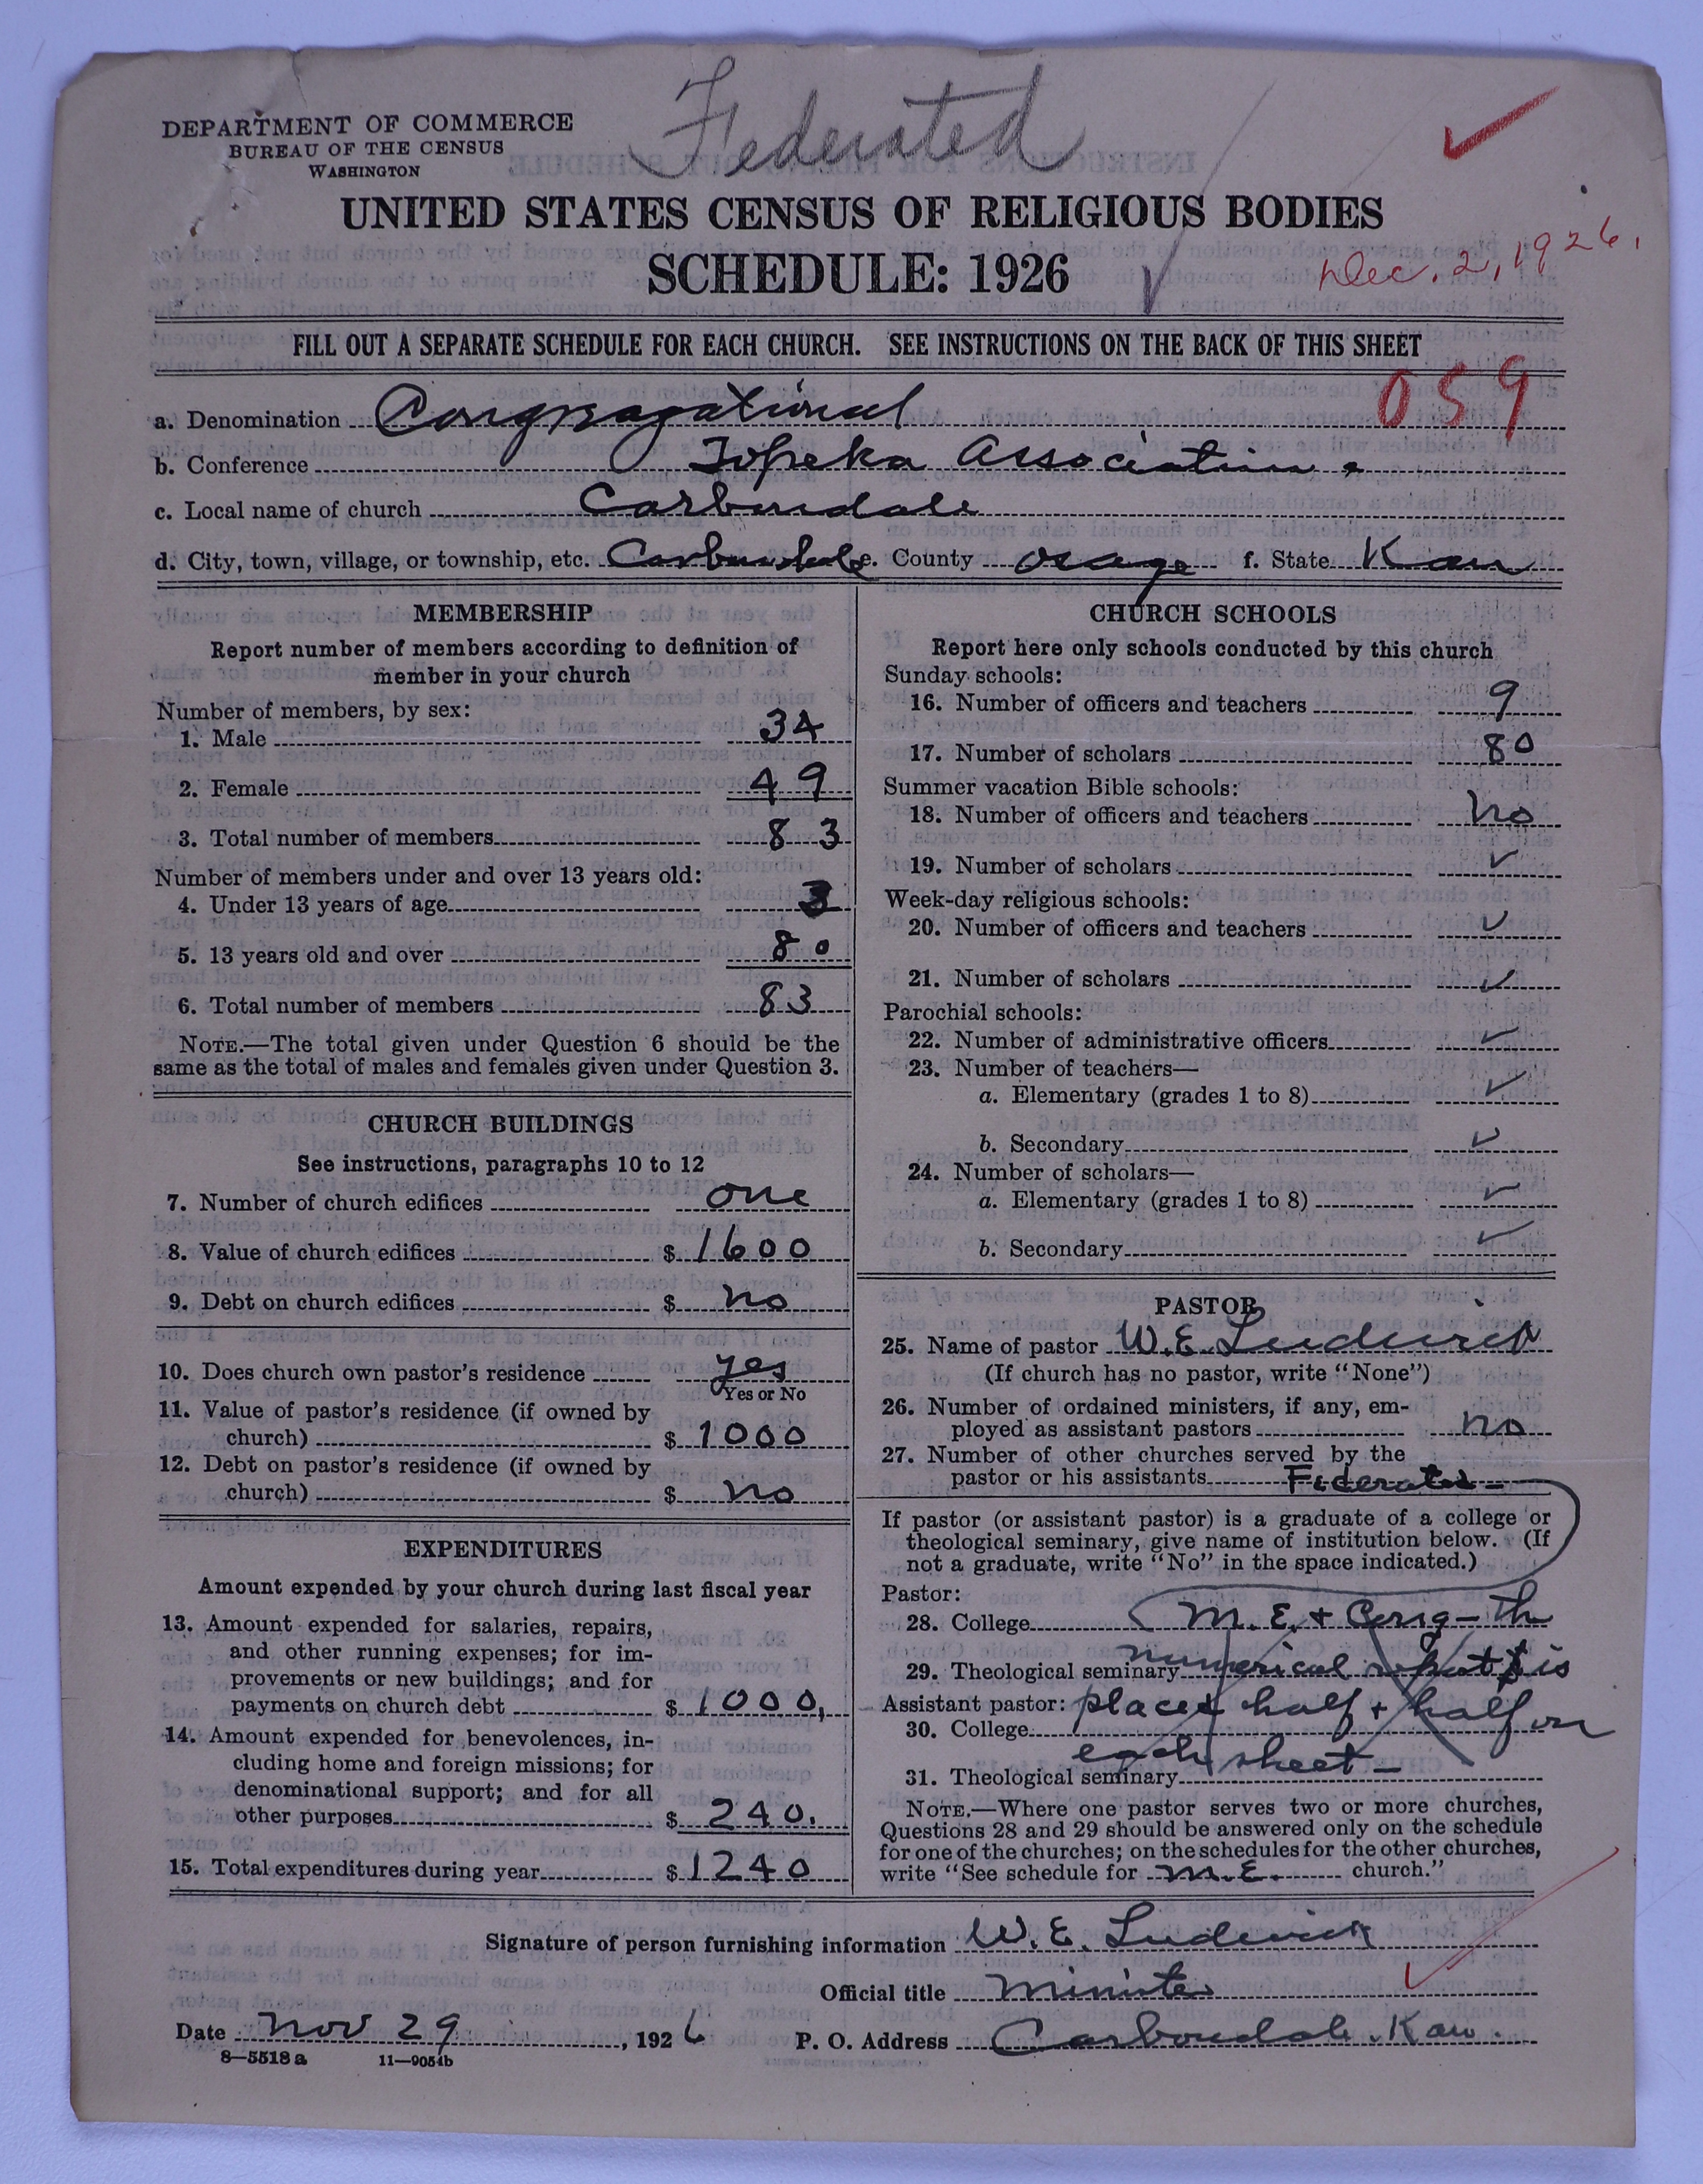 Federated
DEPARTMENT OF COMMERCE
BUREAU OF THE CENSUS
WASHINGTON
UNITED STATES CENSUS OF RELIGIOUS BODIES
SCHEDULE: 1926
Dec. 2, 1926.
FILL OUT A SEPARATE SCHEDULE FOR EACH CHURCH. SEE INSTRUCTIONS ON THE BACK OF THIS SHEET
059
a. Denomination Congregational
b. Conference Topeka Association.
c. Local name of church Carbondale
d. City, town, village, or township, etc. Carbondale e. County Osage f. State Kan
MEMBERSHIP
Report number of members according to definition of
member in your church
Number of members, by sex:
1. Male 34
2. Female 49
3. Total number of members 83
Number of members under and over 13 years old:
4. Under 13 years of age 3
5. 13 years old and over 80
6. Total number of members 83
NOTE.—The total given under Question 6 should be the
same as the total of males and females given under Question 3.
CHURCH BUILDINGS
See instructions, paragraphs 10 to 12
7. Number of church edifices one
8. Value of church edifices $ 1600
9. Debt on church edifices $ no
10. Does church own pastor's residence yes
Yes or No
11. Value of pastor's residence (if owned by
church) $ 1000
12. Debt on pastor's residence (if owned by
church) $ no
EXPENDITURES
Amount expended by your church during last fiscal year
13. Amount expended for salaries, repairs,
and other running expenses; for im-
provements or new buildings; and for
payments on church debt $ 1000,
14. Amount expended for benevolences, in-
cluding home and foreign missions; for
denominational support; and for all
other purposes $ 240.
15. Total expenditures during year $ 1240
CHURCH SCHOOLS
Report here only schools conducted by this church
Sunday schools:
16. Number of officers and teachers 9
17. Number of scholars 80
Summer vacation Bible schools:
18. Number of officers and teachers no
19. Number of scholars ✓
Week-day religious schools:
20. Number of officers and teachers ✓
21. Number of scholars ✓
Parochial schools:
22. Number of administrative officers ✓
23. Number of teachers—
a. Elementary (grades 1 to 8) ✓
b. Secondary ✓
24. Number of scholars—
a. Elementary (grades 1 to 8) ✓
b. Secondary ✓
PASTOR
25. Name of pastor W. E. Ludwick
(If church has no pastor, write "None")
26. Number of ordained ministers, if any, em-
ployed as assistant pastors no
27. Number of other churches served by the
pastor or his assistants Federated—
If pastor (or assistant pastor) is a graduate of a college or
theological seminary, give name of institution below. (If
not a graduate, write "No" in the space indicated.)
Pastor:
28. College M. E. + Cong— the
29. Theological seminary numerical report is
Assistant pastor: placed half + half on
30. College
each sheet—
31. Theological seminary
NOTE.—Where one pastor serves two or more churches,
Questions 28 and 29 should be answered only on the schedule
for one of the churches; on the schedules for the other churches,
write "See schedule for M.E. church."
Signature of person furnishing information W. E. Ludwick
Official title Minister
Date Nov 29, 1926 P. O. Address Carbondale. Kan.
8—5518 a 11—9054b